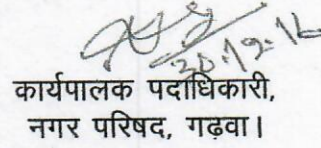 20.12.16
कार्यपालक पदाधिकारी,
नगर परिषद, गढ़वा।